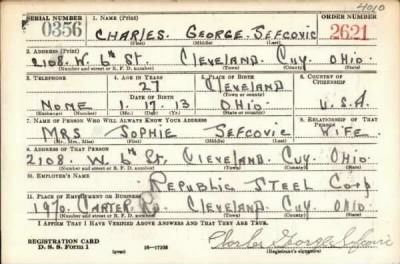 4010
SERIAL NUMBER 1. NAME (Print) ORDER NUMBER
0356 CHARLES. GEORGE. SEFCOVIC 2621
(First) (Middle) (Last)
2. ADDRESS (Print)
2108. W. 6th St. CLEVELAND. CUY. OHIO.
(Number and street or R. F. D. number) (Town) (County) (State)
3. TELEPHONE 4. AGE IN YEARS 5. PLACE OF BIRTH 6. COUNTRY OF CITIZENSHIP
27 CLEVELAND
DATE OF BIRTH (Town or county)
NONE 1. 17. 13 OHIO. U.S.A.
(Exchange) (Number) (Mo.) (Day) (Yr.) (State or country)
7. NAME OF PERSON WHO WILL ALWAYS KNOW YOUR ADDRESS 8. RELATIONSHIP OF THAT PERSON
MRS SOPHIE SEFCOVIC WIFE
(Mr., Mrs., Miss) (First) (Middle) (Last)
9. ADDRESS OF THAT PERSON
2108. W. 6th St. CLEVELAND. CUY. OHIO.
(Number and street or R. F. D. number) (Town) (County) (State)
10. EMPLOYER'S NAME
REPUBLIC STEEL CORP
11. PLACE OF EMPLOYMENT OR BUSINESS
CARTER RD. CLEVELAND. CUY. OHIO
(Number and street or R. F. D. number) (Town) (County) (State)
I AFFIRM THAT I HAVE VERIFIED ABOVE ANSWERS AND THAT THEY ARE TRUE.
REGISTRATION CARD
D. S. S. Form 1 (over) 16—17105 Charles George Sefcovic
(Registrant's signature)